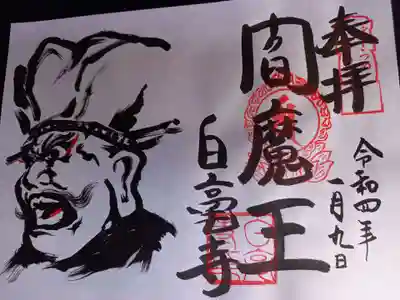 奉拝
令和四年
一月九日
閻魔王
白毫寺